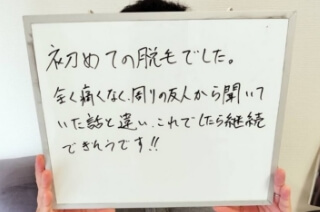 初めての脱毛でした。
全く痛くなく、周りの友人から聞いて
いた話と違い、これでしたら継続
できそうです!!